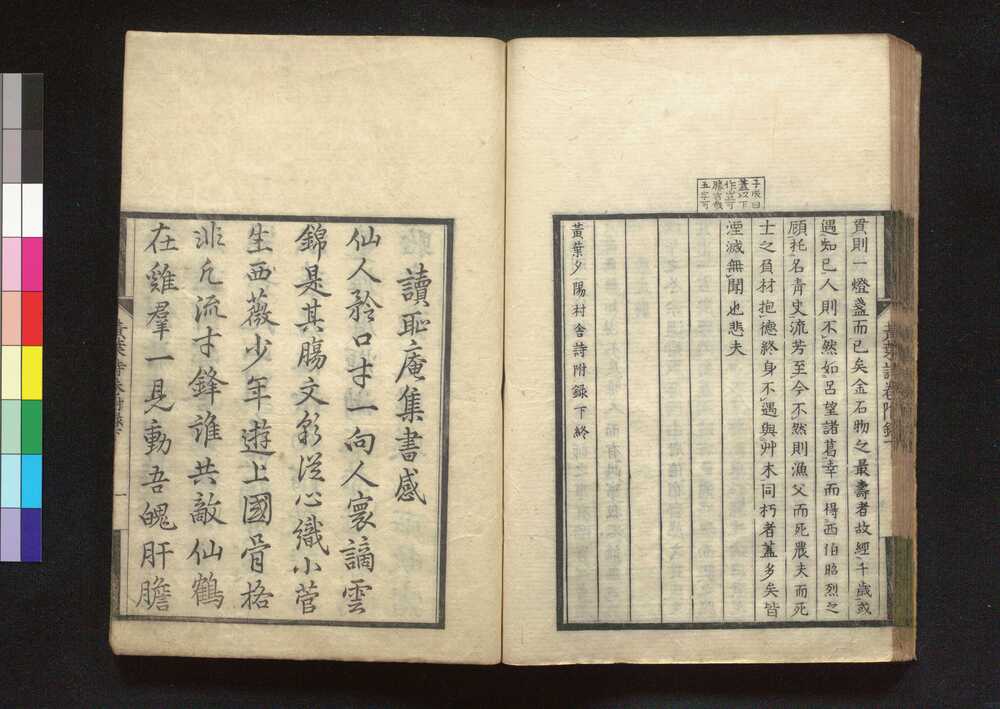 子成曰
蓋以下
作豈可
勝言哉
五字可
貫則一燈盞而已矣金石物之最壽者故經千歲或
遇知已人則不然如呂望諸葛幸而得西伯昭烈之
顧托名青史流芳至今不然則漁父而死農夫而死
士之負材抱德終身不遇與艸木同朽者蓋多矣皆
湮滅無聞也悲夫
黃葉夕陽村舍詩附錄下終
讀恥庵集書感
仙人矜口才一向人寰謫雲
錦是其腸文彩從心織小菅
生西薇少年遊上國骨格
非凡流才鋒誰共敵仙鶴
在雞羣一見動吾魄肝膽